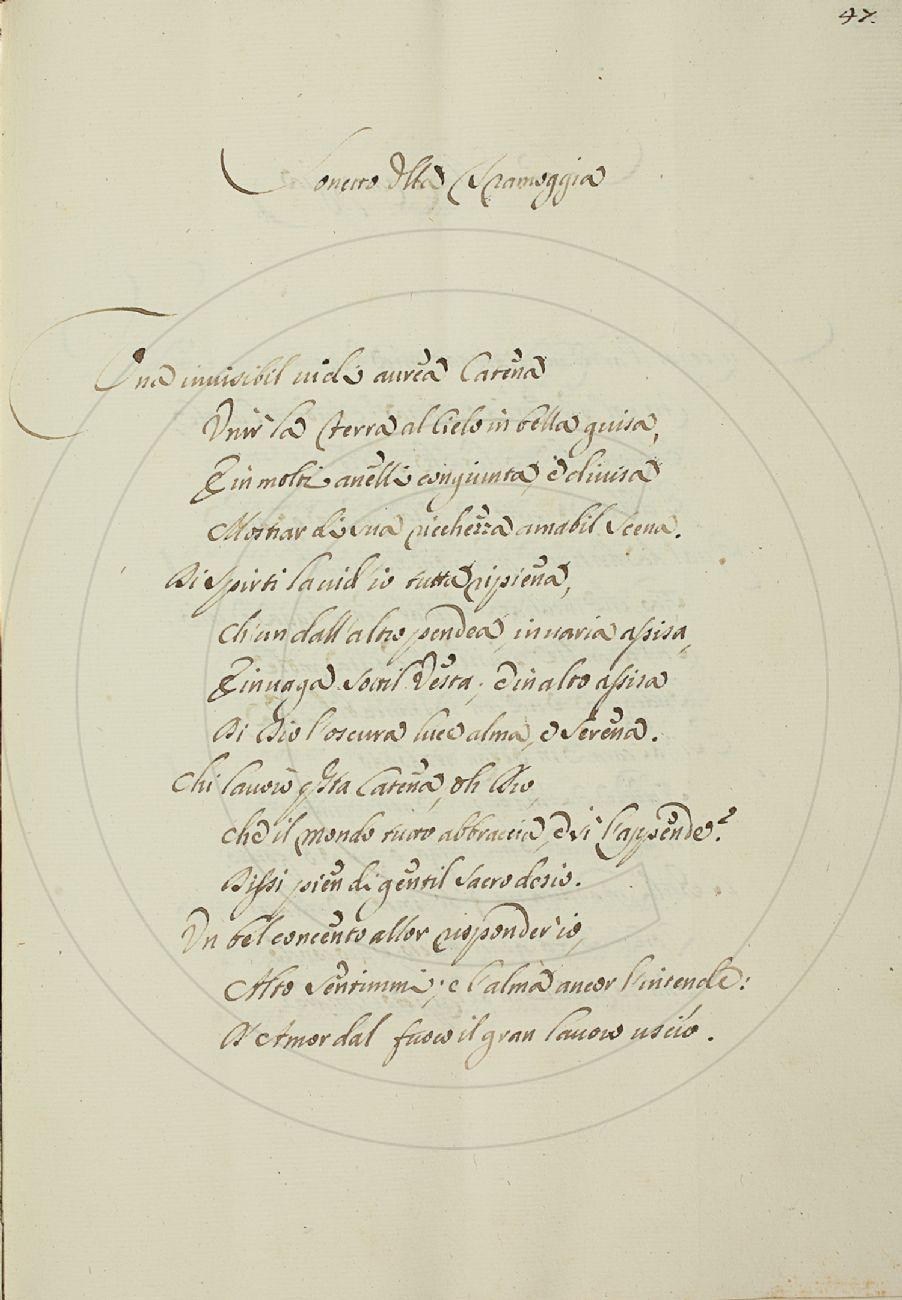 47.
Sonetto dlla Scameggia
Una invisibil vidi aurea Catena
Unir la Terra al Cielo in bella guisa,
E in molti anelli congiunta, e divisa
Mostrar di sua ricchezza amabil Scena.
Di Spirti la vid' io tutta ripiena,
Ch'un dall'altro pendea, in varia assisa,
E in vaga Sottil Vesta, e in alto assisa
Di Dio l'oscura luce alma, e Serena.
Chi lavorò qsta Catena, oh Dio,
Che il mondo tutto abbraccia, e vi l'appende?
Dissi pien di gentil Sacro desio.
Un bel concento allor risponder' io,
Alto Sentimmi; e l'alma ancor l'intende:
D'Amor dal fuoco il gran lavoro uscìo.